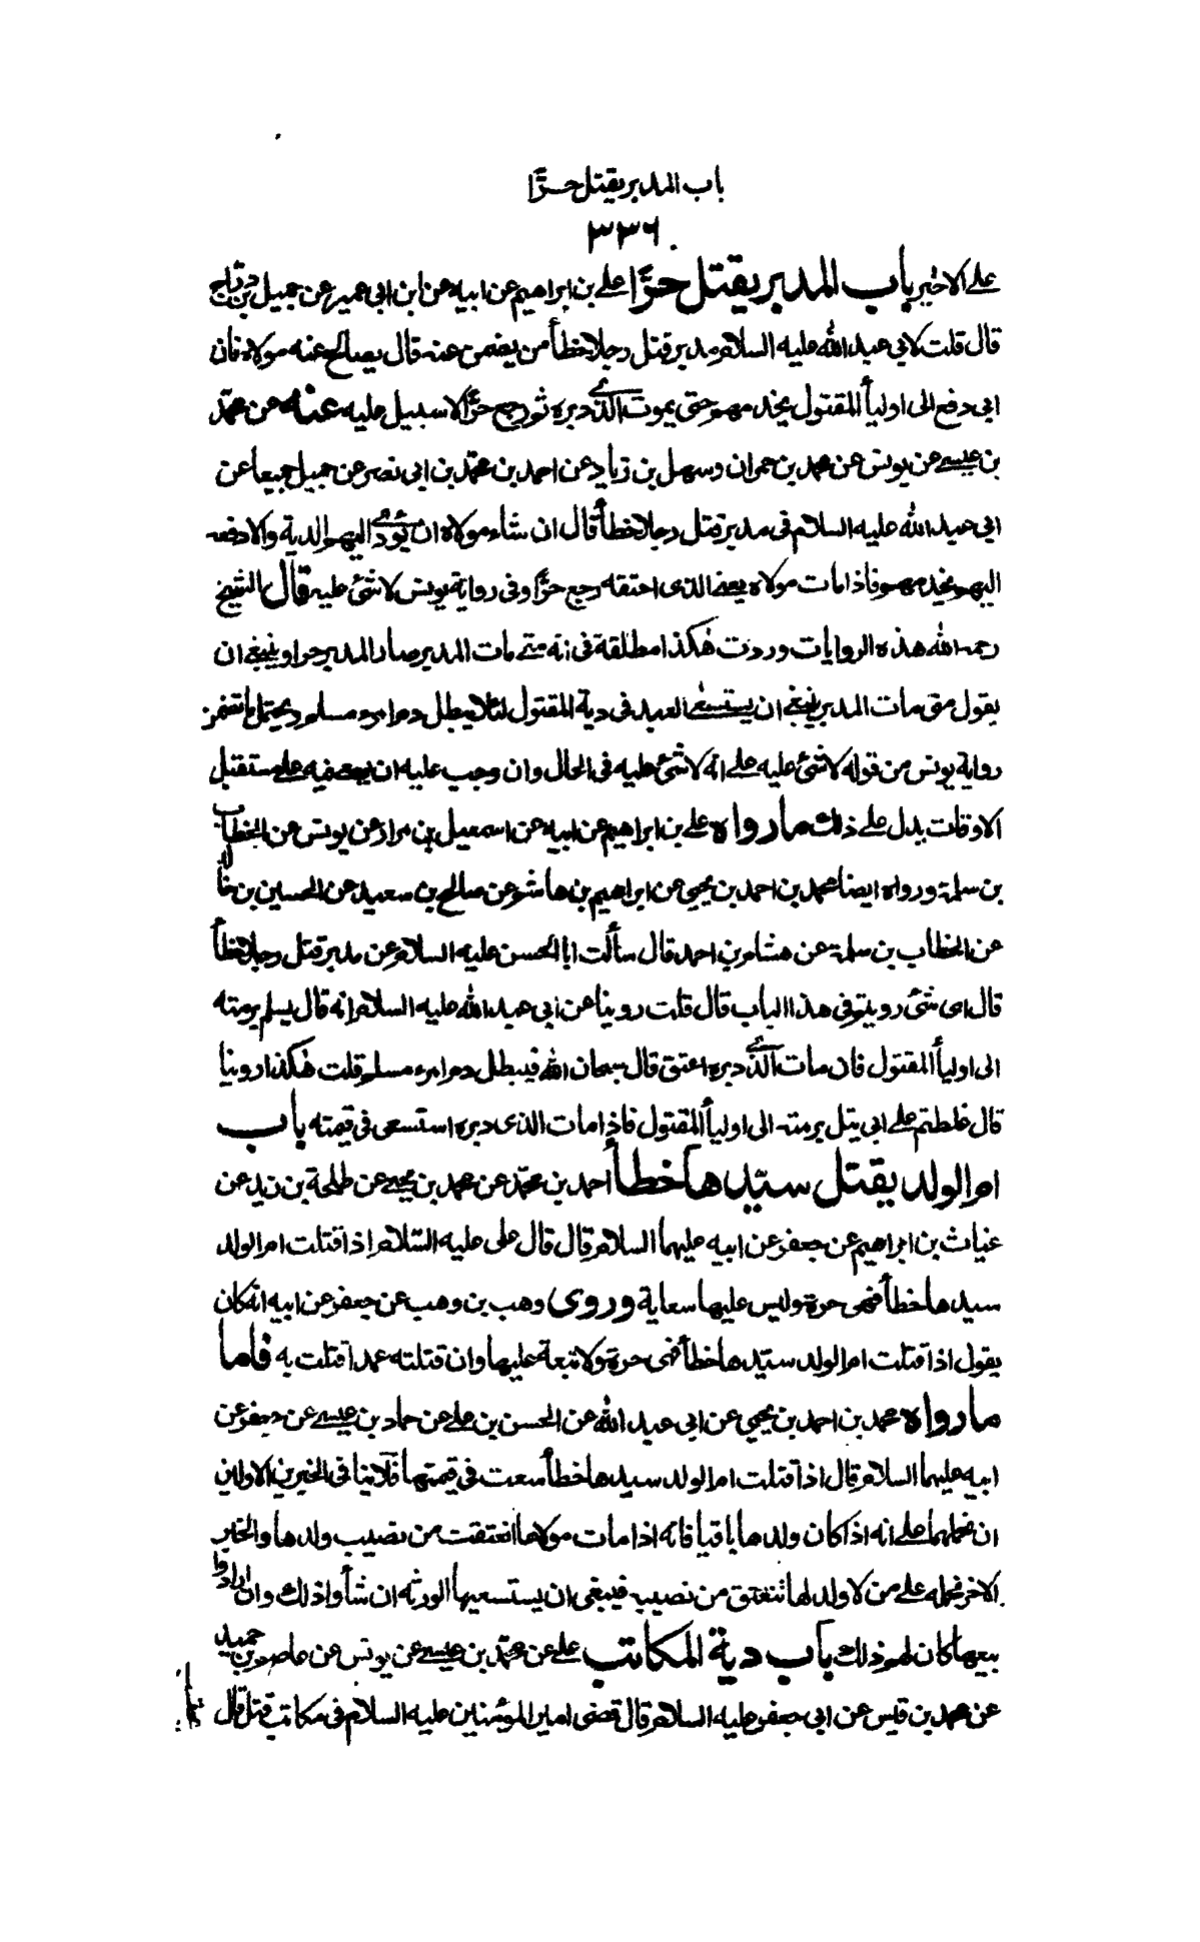 باب المدبر يقتل حرًّا
٣٣٦
على الاخير باب المدبر يقتل حرًّا على بن ابراهيم عن ابيه عن ابن ابى عمير عن جميل بن دراج
قال قلت لابى عبد الله عليه السلام مدبر قتل رجلا خطأ من يضمن عنه قال يصالح عنه مولاه فان
ابى دفع الى اولياء المقتول يخدمهم حتى يموت الذى دبره ثم يرجع حرًّا لا سبيل عليه عنه عن محمّد
بن عيسى عن يونس عن محمد بن حمران وسهل بن زياد عن احمد بن محمّد بن ابى نصر عن جميل جميعا عن
ابى عبد الله عليه السلام فى مدبر قتل رجلا خطأ قال ان شاء مولاه ان يؤدى اليهم الدية والا دفعه
اليهم يخدمهم فاذا مات مولاه يعنى الذى اعتقه رجع حرًّا وفى رواية يونس لا شئ عليه قال الشيخ
رحمه الله هذه الروايات وردت هكذا مطلقة فى انه متى مات المدبر صار المدبر حرا وينبغى ان
يقول متى مات المدبر ينبغى ان يستسعى العبد فى دية المقتول لئلا يبطل دم امرء مسلم ويحتمل ما تضمن
رواية يونس من قوله لا شئ عليه على انه لا شئ عليه فى الحال وان وجب عليه ان يسعى فيه على مستقبل
الاوقات يدل على ذلك ما رواه على بن ابراهيم عن ابيه عن اسمعيل بن مرار عن يونس عن الخطاب
بن سلمة ورواه ايضا محمد بن احمد بن يحيى عن ابراهيم بن هاشم عن صالح بن سعيد عن الحسين بن خالد
عن الخطاب بن سلمة عن هشام بن احمد قال سألت ابا الحسن عليه السلام عن مدبر قتل رجلا خطأ
قال اى شئ رويتم فى هذا الباب قال قلت روينا عن ابى عبد الله عليه السلام انه قال يسلم برمته
الى اولياء المقتول فان مات الذى دبره اعتق قال سبحان الله فيبطل دم امرء مسلم قلت هكذا روينا
قال غلطتم على ابى يتل برمته الى اولياء المقتول فاذا مات الذى دبره استسعى فى قيمته باب
ام الولد يقتل سيّدها خطأ احمد بن محمّد عن محمد بن يحيى عن طلحة بن زيد عن
غياث بن ابراهيم عن جعفر عن ابيه عليهما السلام قال قال على عليه السّلام اذا قتلت ام الولد
سيدها خطأ فهى حرة وليس عليها سعاية وروى وهب بن وهب عن جعفر عن ابيه انه كان
يقول اذا قتلت ام الولد سيّدها خطأ فهى حرة ولا تبعة عليها وان قتلته عمدا قتلت به فاما
ما رواه محمد بن احمد بن يحيى عن ابى عبد الله عن الحسن بن على عن حماد بن عيسى عن جعفر عن
ابيه عليهما السلام قال اذا قتلت ام الولد سيدها خطأ سعت فى قيمتها فلا ينافى الخبرين الاولين
ان نحملهما على انه اذا كان ولدها باقيا فانه اذا مات مولاها انعتقت من نصيب ولدها والخبر
الاخر نحمله على من لا ولد لها تنعتق من نصيبه فينبغى ان يستسعيها الورثه ان شأوا ذلك وان ارادوا
بيعها كان لهم ذلك باب دية المكاتب على عن محمّد بن عيسى عن يونس عن عاصم بن حميد
عن محمد بن قيس عن ابى جعفر عليه السلام قال قضى امير المؤمنين عليه السلام فى مكاتب قتل قال